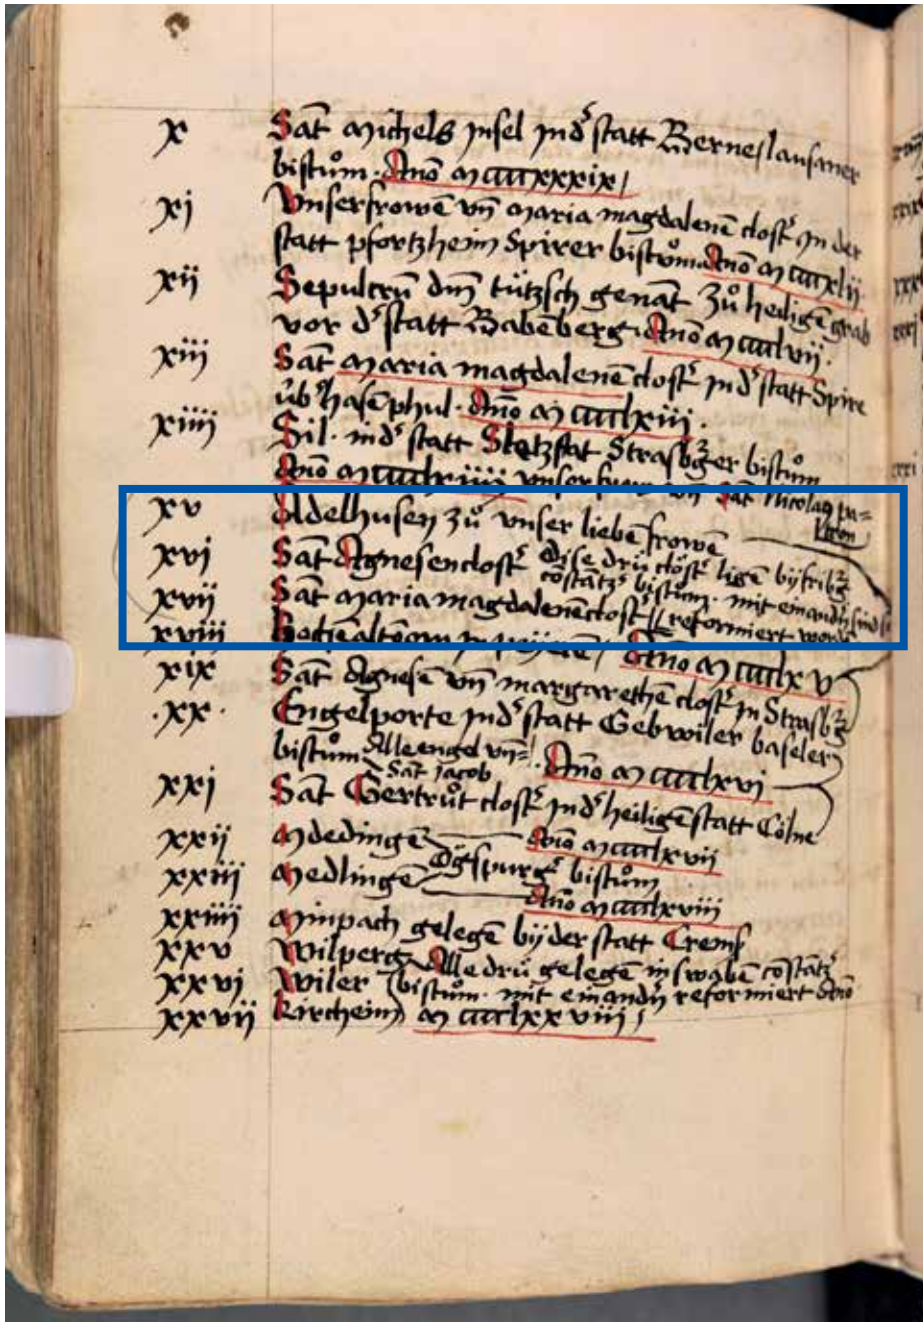 x Sāt Michels jnsel jn dˢ statt Berne / lausaner
bistům. Año M ccccxxxix /
xj Vnserfrowē vn̄ Maria magdalenē clostˢ jn der
statt pfortzheim Spirer bistům Año M ccccxlii
xij Sepulcrū dm̄ tützsch genāt zů heiligē grab
vor dˢ statt Babēberg. Año M cccclvii.
xiij Sāt Maria magdalenē clostˢ jn dˢ statt Spire
übˢ hasē phul. Año M cccclxiii.
xiiij Sil. in dˢ statt Sletzstat Strasbgˢer bistům
Año M cccclxiiii vnser vn̄ Sāt Nicolaꝰ pa=
tron
xv Adelhusen zů vnser liebē frowē
xvj Sāt Agnesenclostˢ Dise drü clöstˢ ligē bÿ fribgˢ
costātzˢ bistům. mit einandˢ sind
xvij Sāt Maria magdalenēclostˢ // reformiert wordē
xviij Año M cccclx v
xix Sāt Agnesē vn̄ margarethē clostˢ jn Strasbgˢ
.xx. Engelporte jn dˢ statt Gebwiler baseler
bistům Alle engel vn̄ =/ Año M cccclxvj
Sāt jacob
xxj Sāt Gertrůt clostˢ jn dˢ heiligē statt Cölne
xxij Mdedingē Año M cccclxvii
Ögspurgˢ bistům
xxiij Medlingē Año M cccclxviii
xxiiij Minpach gelegē bÿ der statt Crems
xxv Wilperg Alle drü gelegē in swabē costātzˢ
xxvj Wiler bistům. mit einandˢ reformiert Año
xxvij Kircheim M cccclxx viii /